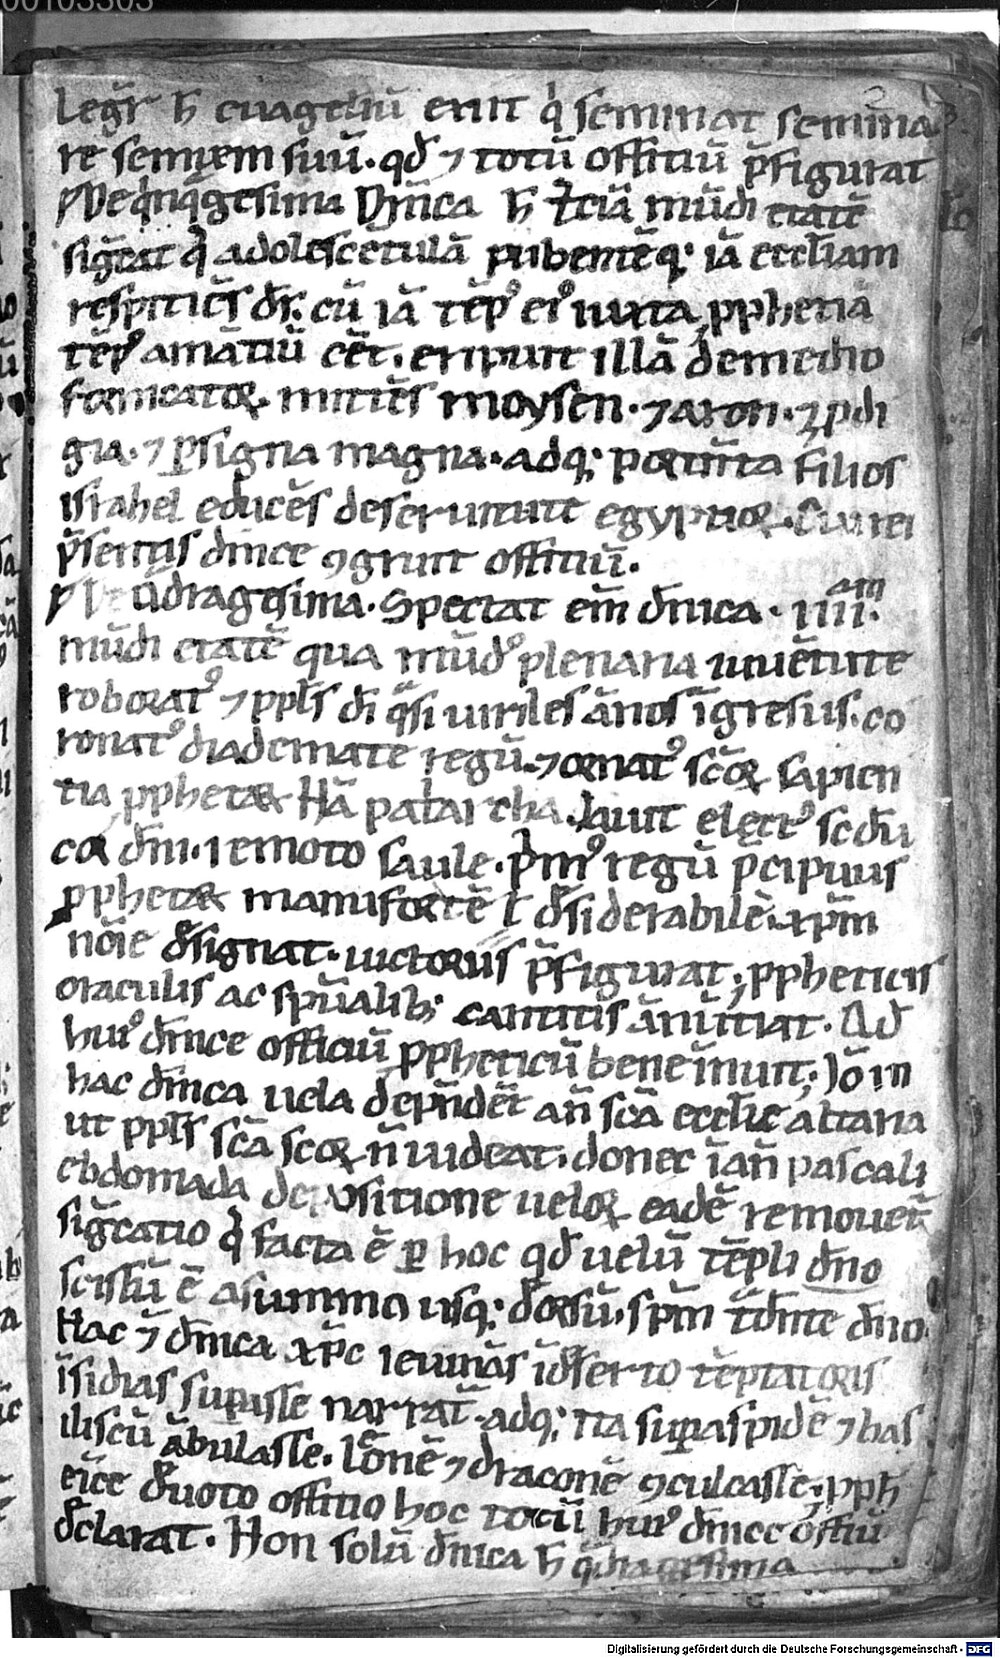 00103303
Legr̄ h̄ euageliū exiit q̇ seminat semina
re semen suū. qđ ⁊ totū offitiū p̄figurat
De q̇nq̄gesima Dn̄ica h̄ t̄ciā mūdi etatē
sig̅cat q̄ adolescētulā pubentēq; iā eccl̅iam
respitiēs dr̄. cū iā tēp᷒ ei᷒ iuxta ꝓphetiā
tēp᷒ amātiū eēt. eripuit illā de medio
fornicatoꝝ. mittēs moysen. ⁊ aron. ⁊ ꝓdi
gia. ⁊ ꝑ signa magna. adq; portēta filios
israhel educēs de seruitute egyptioꝝ. Cui rei
p̄sentis dn̄ice ꝯgruit offitiū.
De q̄dragesima. Spectat em̄ dn̄ica. IIII.am
mūdi etatē qua mūd᷒ plenaria iuuētute
roborat᷒ ⁊ ppl̅s di q̄si uiriles ānos īgresus. co
ronat᷒ diademate regū. ⁊ ornat᷒ sc̄oꝝ sapien
tia ꝓphetaꝝ Nā pat̄archa. Dauit elect᷒ sc̄đu
cor dn̄i. remoto saule. p̄m᷒ regū p̄cipuus
ꝓphetaꝝ manu fortē ł d̄siderabilē. xp̄m
noīe d̄signat. uictoriis p̄figurat; ꝓpheticis
oraculis ac spūalib; canticis ānūtiat. Ad
hui᷒ dn̄ice officiū ꝓpheticū bene inuit; Iō in
hac dn̄ica uela depn̄dēt an̄ scā eccl̅ie altaria
ut ppl̅s scā scoꝝ n̄ uideat. donec īan̄ pascali
ebdomada depositione ueloꝝ eadē remouet̄
sig̅catio q̄ facta ē ꝑ hoc qđ uelū tēpli dn̄o
scissū ē a summo usq; deorsū. sp̄m t̄dn̄te dn̄o.
Hac ⁊ dn̄ica xp̄c ieiunās ī deserto tēptatoris
īsidias supasse narrat̄. adq; ita sup aspidē ⁊ bas
iliscū ābulasse. Leonē ⁊ draconē ꝯculcasse; ꝓph
eice deuoto offitio hoc totū hui᷒ dn̄ice offitiū
d̄clarat. Non solū dn̄ica h̄ q̄dragesima
Digitalisierung gefördert durch die Deutsche Forschungsgemeinschaft - DFG